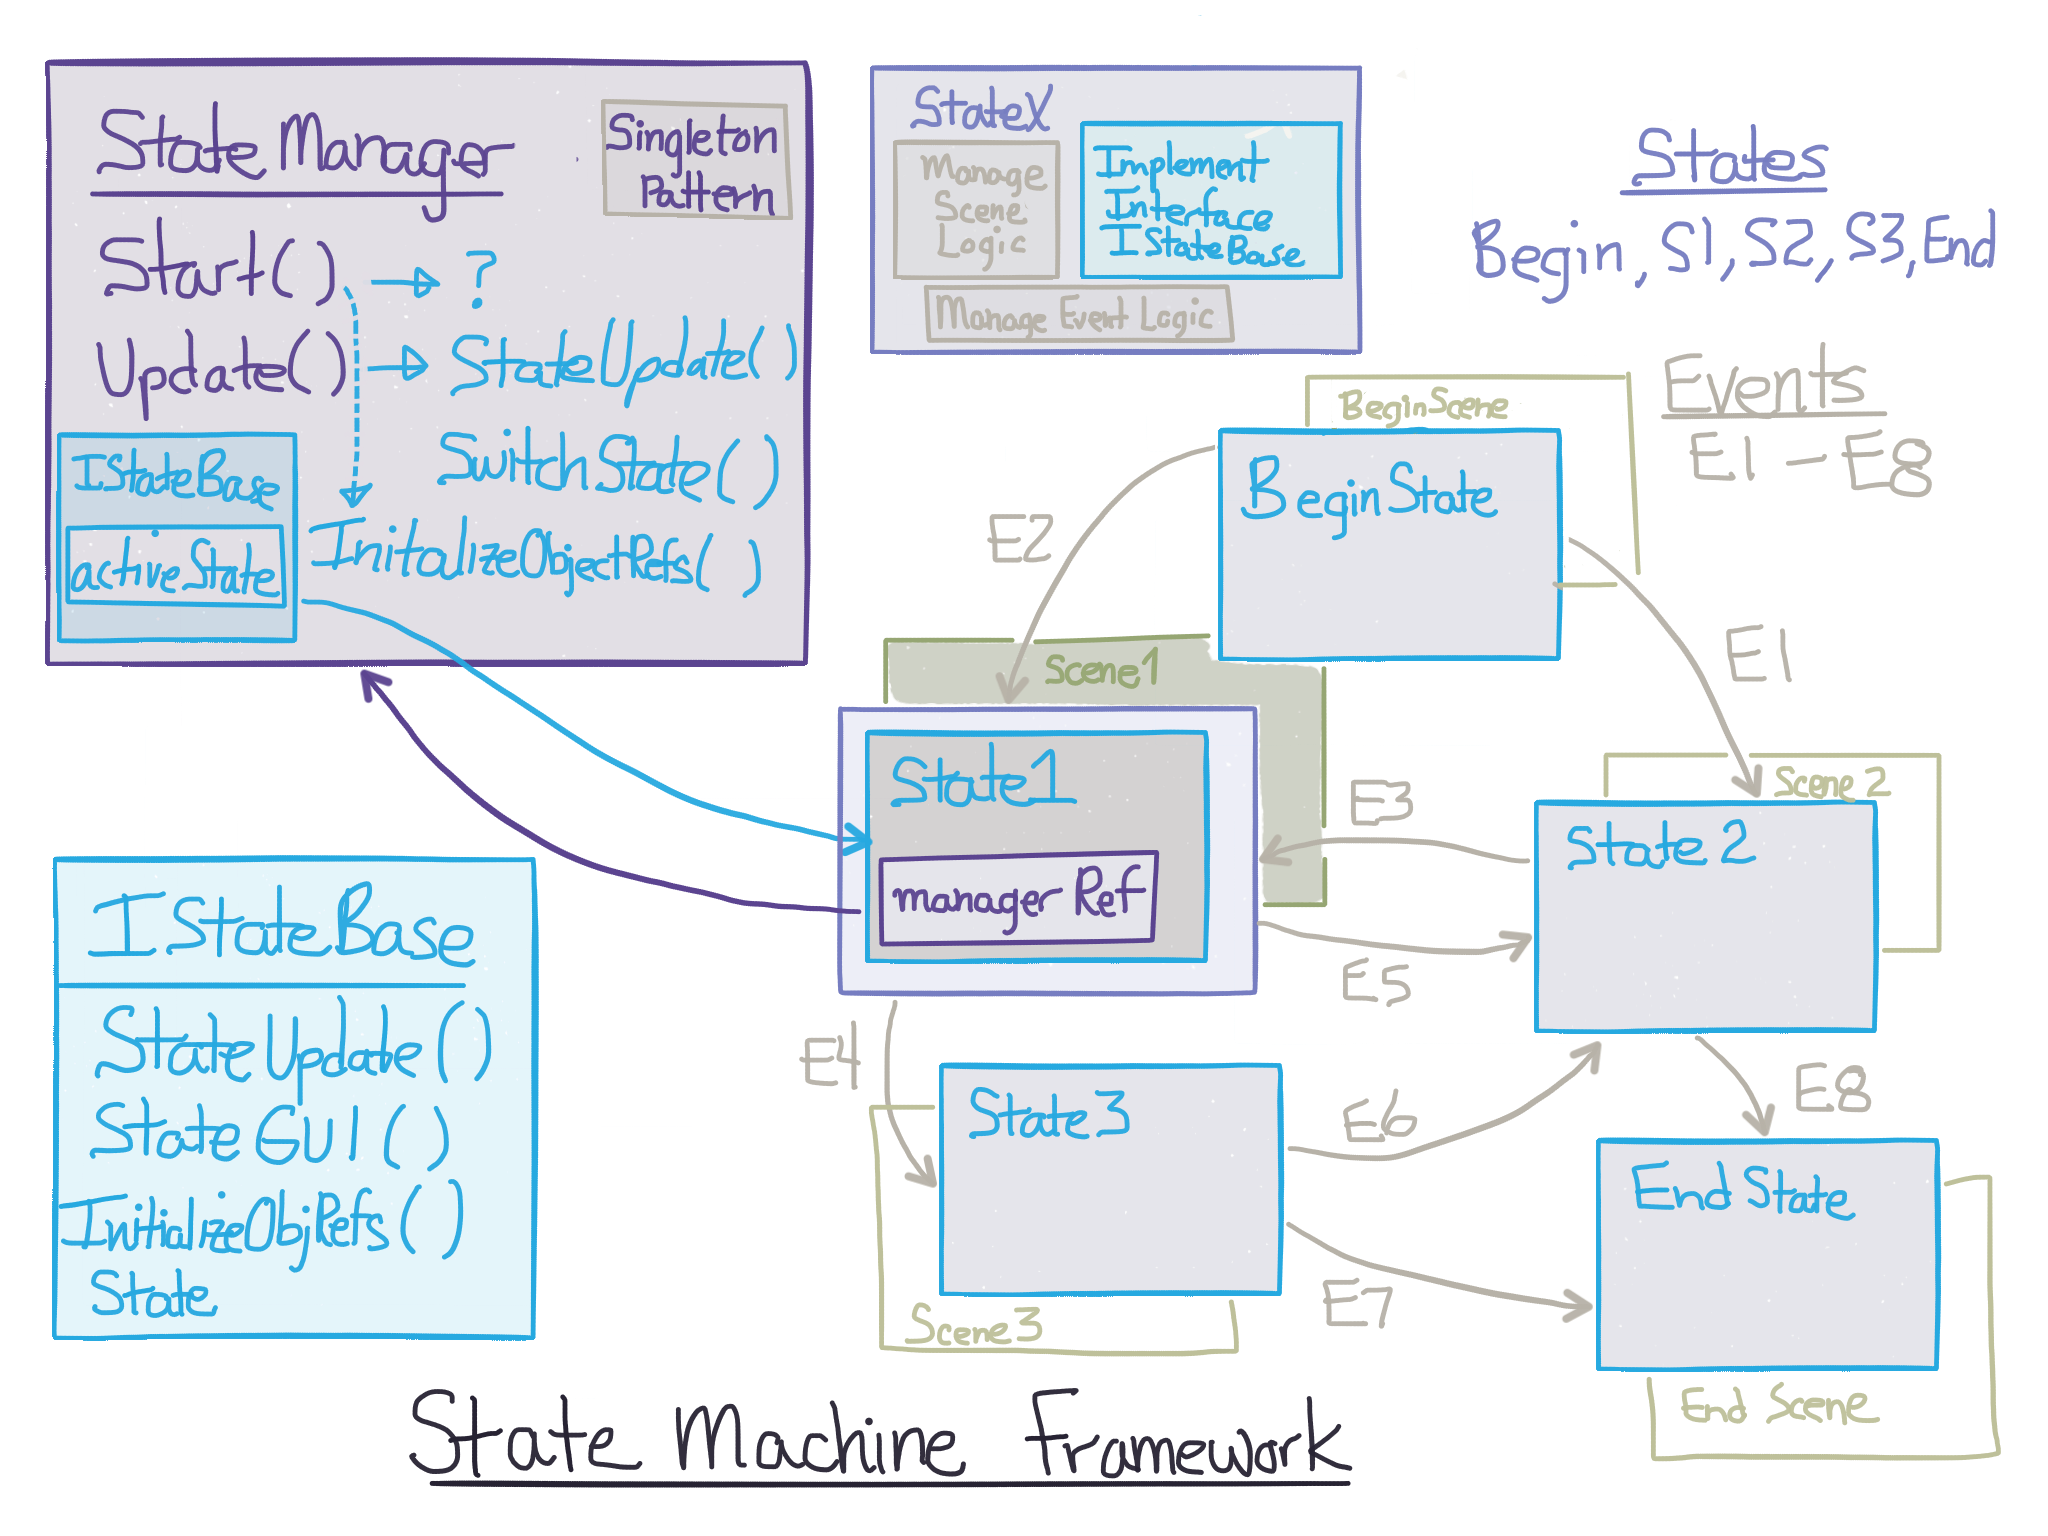 StateManager
Singleton
Pattern
Start()
?
Update()
StateUpdate()
SwitchState()
IStateBase
activeState
InitalizeObjectRefs()
StateX
Manage
Scene
Logic
Implement
Interface
IStateBase
Manage Event Logic
States
Begin, S1, S2, S3, End
Events
E1 - E8
BeginScene
BeginState
E2
E1
Scene1
State1
managerRef
E3
E5
Scene 2
State2
E4
State3
Scene3
E6
E7
E8
End State
End Scene
IStateBase
StateUpdate()
StateGUI()
InitializeObjRefs()
State
State Machine Framework